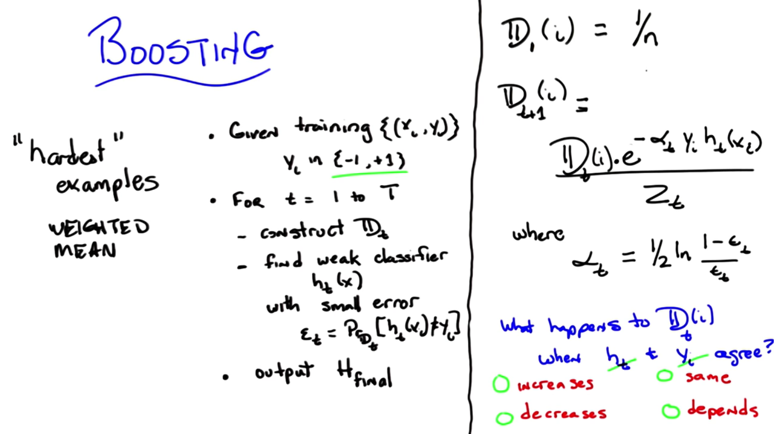 BOOSTING
"hardest"
examples
WEIGHTED
MEAN
• Given training {(xᵢ, yᵢ)}
yᵢ in {-1, +1}
• For t = 1 to T
- construct 𝔻ₜ
- find weak classifier
hₜ(x)
with small error
εₜ = P_𝔻ₜ [hₜ(xᵢ) ≠ yᵢ]
• output H_final
𝔻₁(i) = 1/n
𝔻ₜ₊₁(i) =
𝔻ₜ(i) · e^(-αₜ yᵢ hₜ(xᵢ))
Zₜ
where
αₜ = 1/2 ln (1-εₜ)/εₜ
What happens to 𝔻ₜ(i)
when hₜ + yᵢ agree?
increases
same
decreases
depends